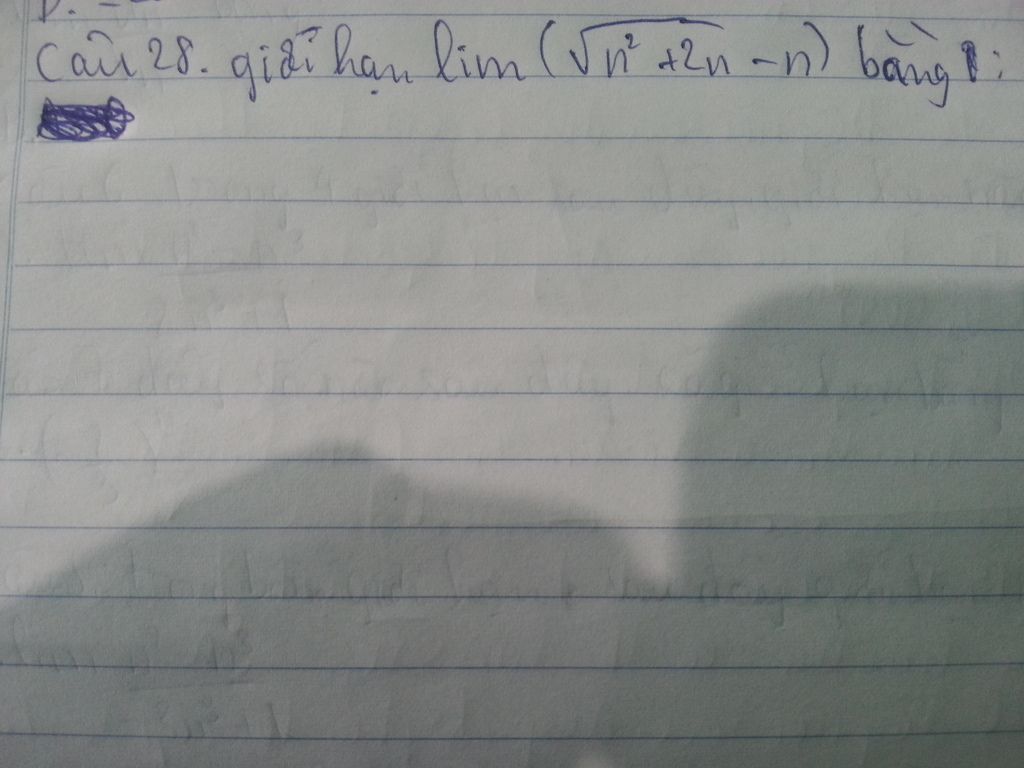 Câu 28. giới hạn lim (√n² +2n - n) bằng :